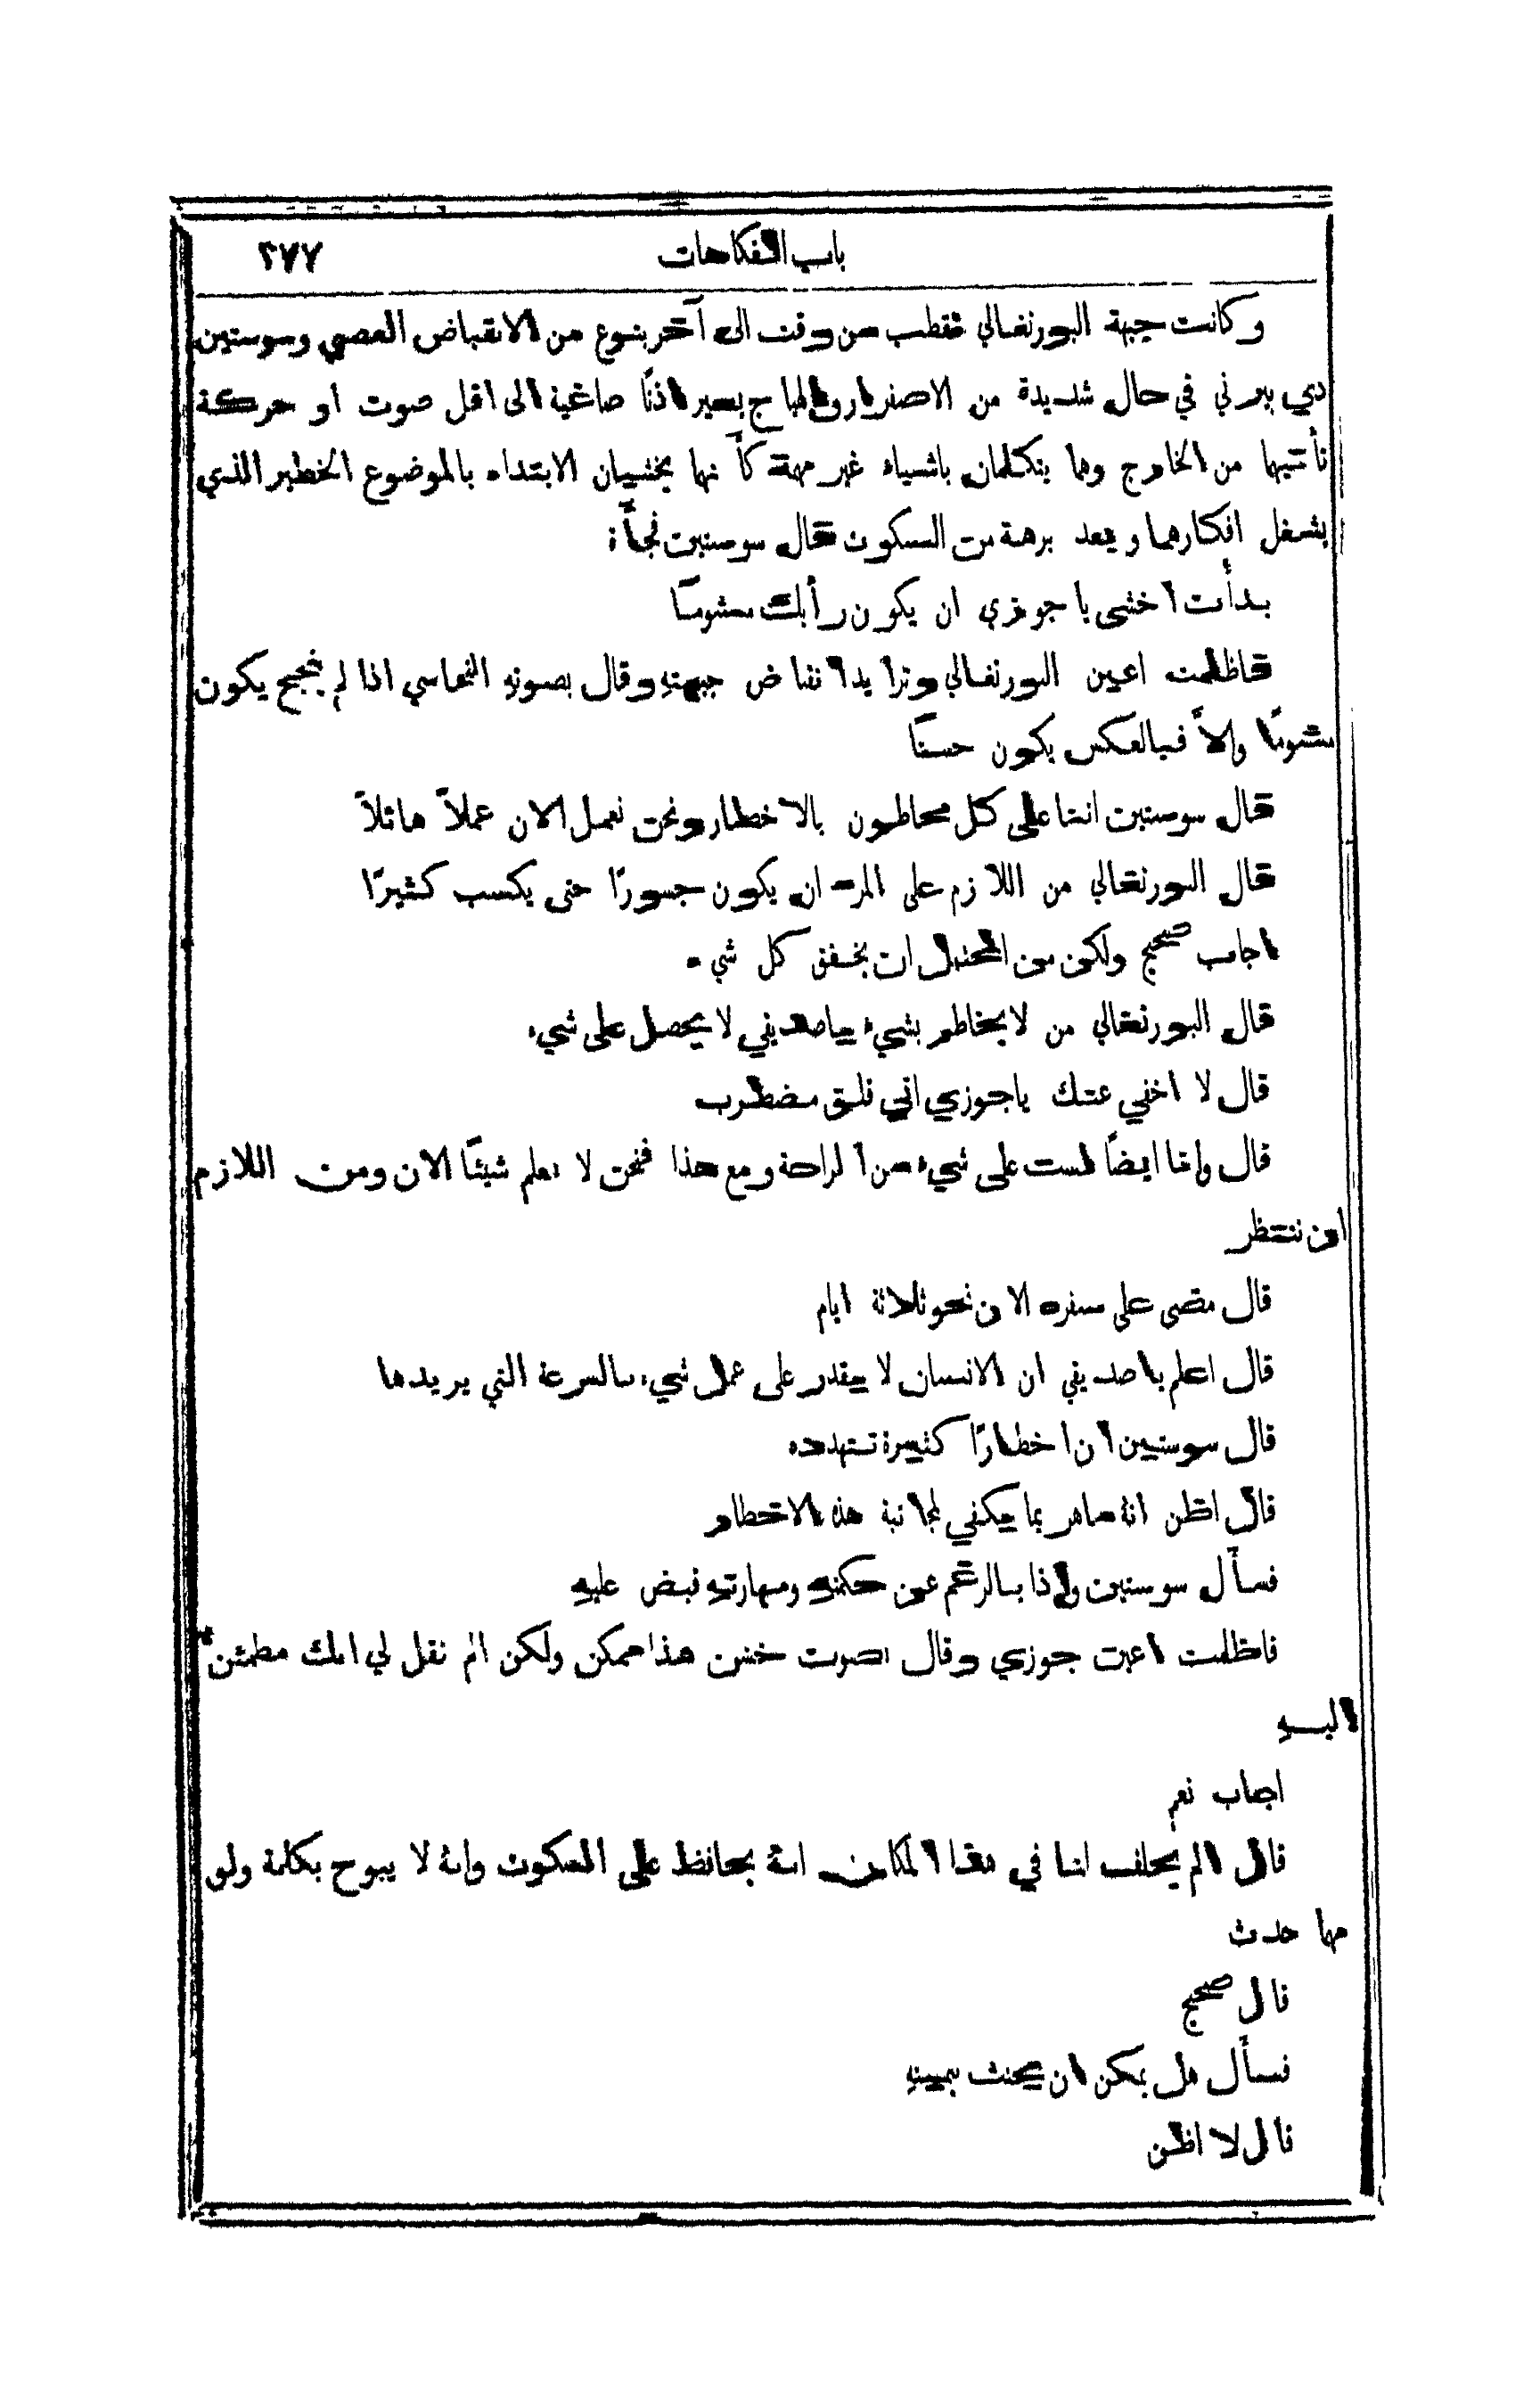 باب الفكاهات ٢٧٧
وكانت جبهة البورتغالي تقطب من وقت الى آخر بنوع من الانقباض العصبي وسوستين
دي بيرني في حال شديدة من الاصفرار والهياج يعير اذنًا صاغية الى اقل صوت او حركة
تأتيهما من الخارج وهما يتكلمان باشياء غير مهمة كأنهما يخشيان الابتداء بالموضوع الخطير الذي
يشغل افكارهما وبعد برهة من السكون قال سوستين فجأة:
بدأت اخشى يا جوزي ان يكون رأيك مشومًا
فاظلمت اعين البورتغالي وتزايد انقباض جبهته وقال بصوته النحاسي اذا لم ينجح يكون
مشومًا والاَّ فبالعكس يكون حسنًا
قال سوستين اننا على كل محاطون بالاخطار ونحن نعمل الان عملاً هائلاً
قال البورتغالي من اللازم على المرء ان يكون جسورًا حتى يكسب كثيرًا
اجاب صحيح ولكن من المحتمل ان يخفق كل شيء
قال البورتغالي من لا يخاطر بشيء يا صديقي لا يحصل على شيء
قال لا اخفي عنك يا جوزي اني قلق مضطرب
قال وانا ايضًا لست على شيء من الراحة ومع هذا فنحن لا نعلم شيئًا الان ومن اللازم
ان ننتظر
قال مضى على سفره الان نحو ثلاثة ايام
قال اعلم يا صديقي ان الانسان لا يقدر على عمل شيء بالسرعة التي يريدها
قال سوستين ان اخطارًا كثيرة تتهدده
قال اظن انهُ ماهر بما يكفي لمجانبة هذه الاخطار
فسأل سوستين واذا بالرغم عن حكمتهِ ومهارتهِ قبض عليهِ
فاظلمت اعين جوزي وقال بصوت خشن هذا ممكن ولكن الم تقل لي انك مطمئن
اليهِ
اجاب نعم
قال الم يحلف لنا في هذا المكان انهُ يحافظ على السكوت وانهُ لا يبوح بكلمة ولو
مهما حدث
قال صحيح
فسأل هل يمكن ان يحنث بيمينهِ
قال لا اظن